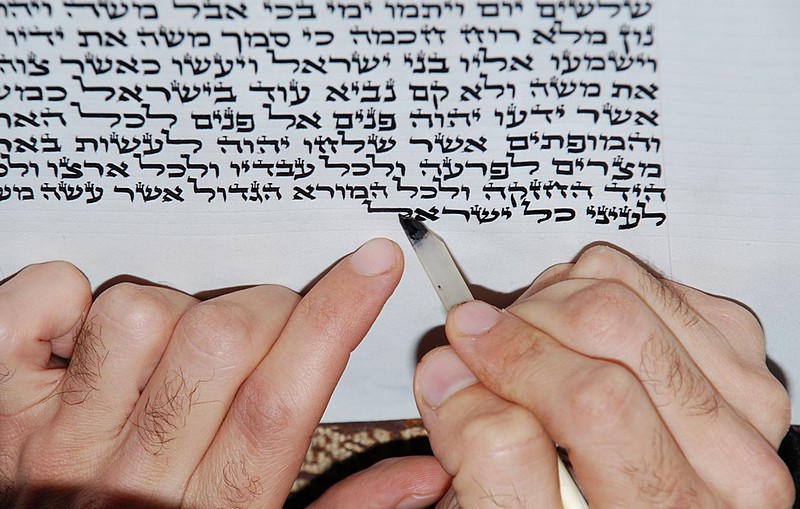 שלשים יום ויתמו ימי בכי אבל משה ויהו
נון מלא רוח חכמה כי סמך משה את ידיו
וישמעו אליו בני ישראל ויעשו כאשר צוה
את משה ולא קם נביא עוד בישראל כמש
אשר ידעו יהוה פנים אל פנים לכל הא
והמופתים אשר שלחו יהוה לעשות באר
מצרים לפרעה ולכל עבדיו ולכל ארצו ולכ
היד החזקה ולכל המורא הגדול אשר עשה מש
לעיני כל ישראל